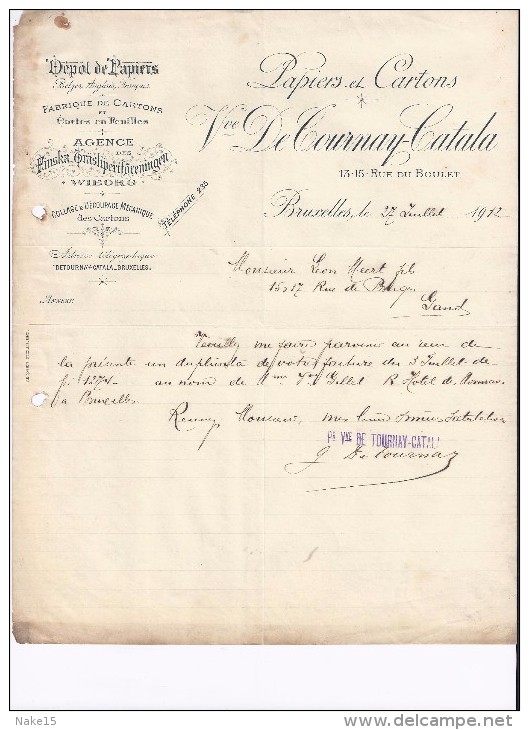 Dépôt de Papiers
Belges, Anglais, Français
FABRIQUE DE CARTONS
ET
Cartes en Feuilles
AGENCE
DES
Finska Träsliperiföreningen
WIBORG
COLLAGE & DÉCOUPAGE MÉCANIQUE
des Cartons
Adresse télégraphique
"DETOURNAY-CATALA_BRUXELLES"
TÉLÉPHONE 235
Papiers et Cartons
Vve De Tournay-Catala
13-15-RUE DU BOULET
Bruxelles, le 27 Juillet 1912
ANNEXE
Monsieur Léon Meert fils
15 & 17 Rue de Bruges
Gand
Veuillez me faire parvenir au reçu de
la présente un duplicata de votre facture du 3 Juillet de
au nom de Mme Vve Gillet Hôtel de
à Bruxelles.
Recevez Monsieur, mes Salutations
Pr VVE DE TOURNAY-CATALA
De Tournay
Nake15
delcampe.net